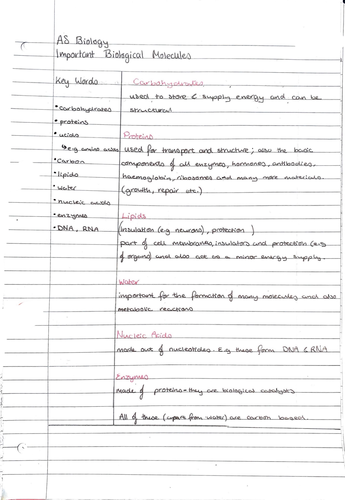 AS Biology
Important Biological Molecules
Key Words
• carbohydrates
• proteins
• acids
↳ e.g amino acids
• Carbon
• lipids
• water
• nucleic acids
• enzymes
• DNA, RNA
Carbohydrates
used to store & supply energy and can be
structural
Proteins
used for transport and structure; also the basic
components of all enzymes, hormones, antibodies,
haemoglobin, ribosomes and many more materials.
(growth, repair etc.)
Lipids
(Insulation (e.g neurons), protection )
part of cell membranes, insulators and protection (e.g
of organs) and also act as a minor energy supply.
Water
important for the formation of many molecules and also
metabolic reactions
Nucleic Acids
made out of nucleotides. E.g these form DNA & RNA
Enzymes
made of proteins → they are biological catalysts
All of these (apart from water) are carbon based.